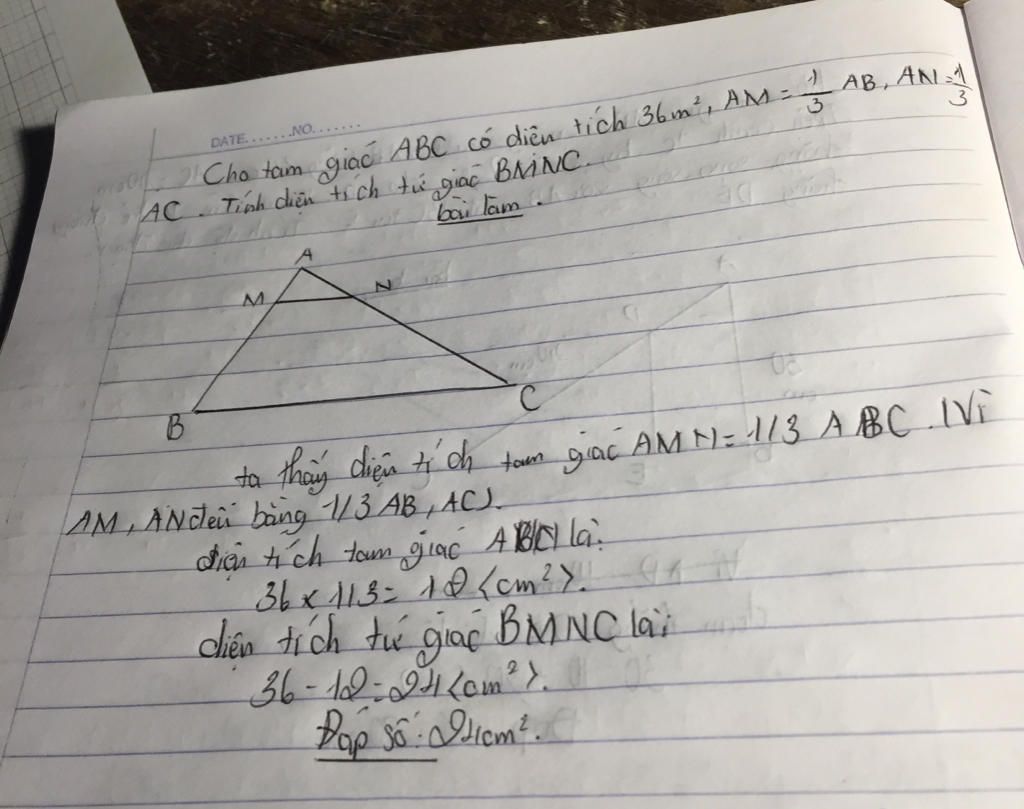 DATE.......NO.......
Cho tam giác ABC có diện tích 36m², AM = 1/3 AB, AN = 1/3
AC. Tính diện tích tứ giác BMNC.
bài làm.
A
M N
B C
ta thấy diện tích tam giác AMN = 1/3 ABC. (Vì
AM, AN đều bằng 1/3 AB, AC).
diện tích tam giác là:
36 x 1/3 = 12 (cm²).
diện tích tứ giác BMNC là:
36 - 12 = 24 (cm²).
Đáp số: 24cm².